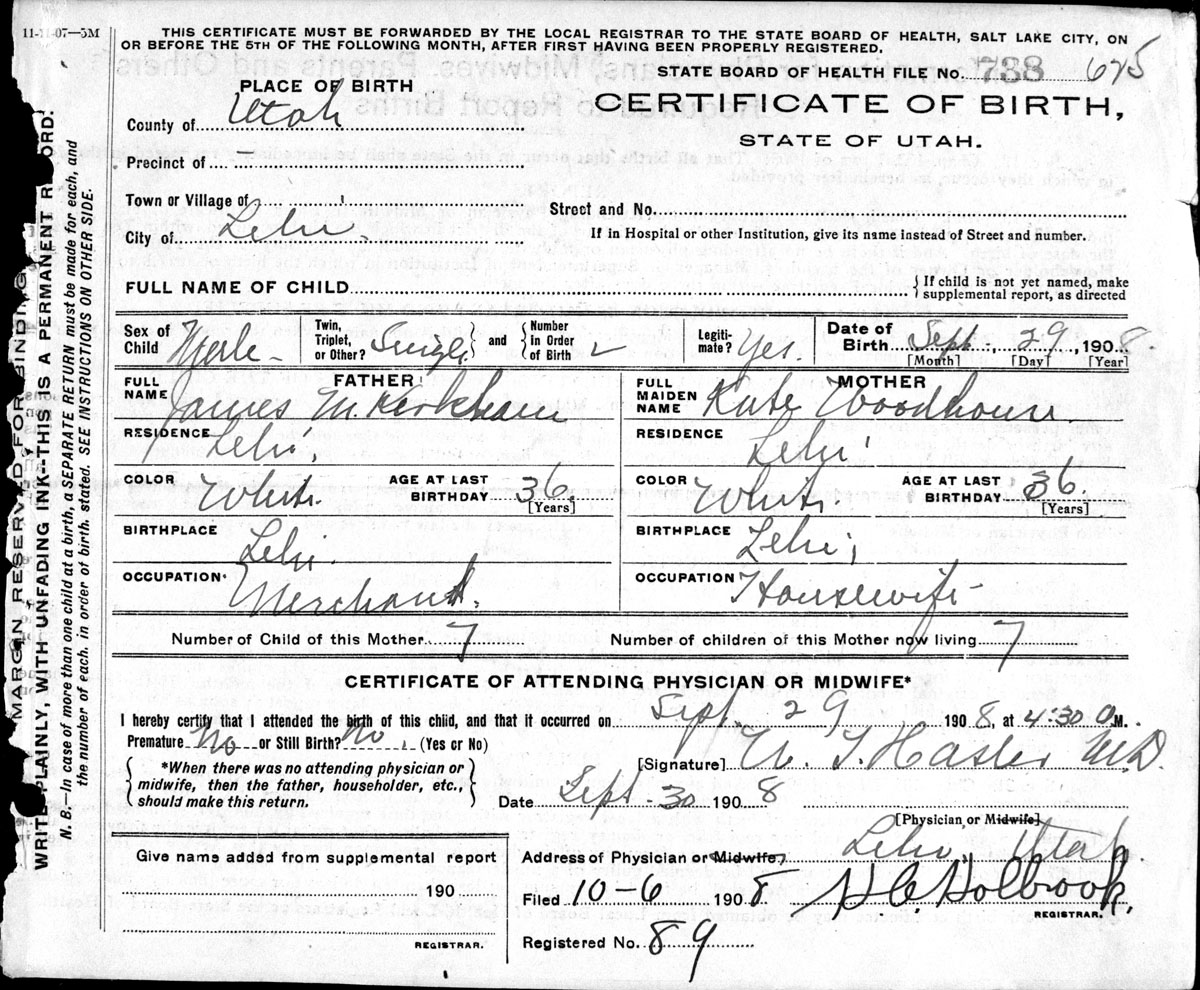 11-11-07—5M
THIS CERTIFICATE MUST BE FORWARDED BY THE LOCAL REGISTRAR TO THE STATE BOARD OF HEALTH, SALT LAKE CITY, ON
OR BEFORE THE 5TH OF THE FOLLOWING MONTH, AFTER FIRST HAVING BEEN PROPERLY REGISTERED.
STATE BOARD OF HEALTH FILE No. 738 675
PLACE OF BIRTH
CERTIFICATE OF BIRTH,
STATE OF UTAH.
County of Utah
Precinct of –
Town or Village of
Street and No.
City of Lehi.
If in Hospital or other Institution, give its name instead of Street and number.
FULL NAME OF CHILD
{ If child is not yet named, make
supplemental report, as directed
Sex of Child Male – Twin, Triplet, or Other? Single } and { Number in Order of Birth Legiti-mate? Yes. Date of Birth Sept. 29, 1908.
[Month] [Day] [Year]
FATHER MOTHER
FULL NAME James M. Kirkham FULL MAIDEN NAME Kate Woodhouse.
RESIDENCE Lehi, RESIDENCE Lehi
COLOR White. AGE AT LAST BIRTHDAY 36. COLOR White. AGE AT LAST BIRTHDAY 36
[Years] [Years]
BIRTHPLACE Lehi. BIRTHPLACE Lehi,
OCCUPATION Merchant. OCCUPATION Housewife
Number of Child of this Mother 7 Number of children of this Mother now living 7
CERTIFICATE OF ATTENDING PHYSICIAN OR MIDWIFE*
I hereby certify that I attended the birth of this child, and that it occurred on Sept. 29 1908, at 4:30 A.M.
Premature No or Still Birth? No, (Yes or No)
[Signature] Hasler M.D.
{ *When there was no attending physician or
midwife, then the father, householder, etc.,
should make this return. }
Date Sept. 30 1908
[Physician or Midwife]
Give name added from supplemental report
190
REGISTRAR.
Address of Physician or Midwife, Lehi, Utah.
Filed 10-6 1908 Holbrook.
REGISTRAR.
Registered No. 89
MARGIN RESERVED FOR BINDING
WRITE PLAINLY, WITH UNFADING INK--THIS IS A PERMANENT RECORD.
N. B.—In case of more than one child at a birth, a SEPARATE RETURN must be made for each, and
the number of each, in order of birth, stated. SEE INSTRUCTIONS ON OTHER SIDE.